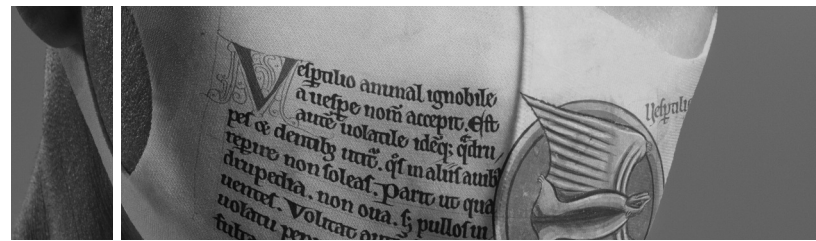 Vespꝑtilio animal ignobile
a uespe nom̄ accepit. Est
autē uolatile idēq; qͣdru
pes & dentib; utit᷑. qd̄ in aliis auib;
reꝑire non soleas. Parit ut qua
drupedia. non oua. s; pullos ui
uentes. Volitat aut
uolatu
Uesptilio